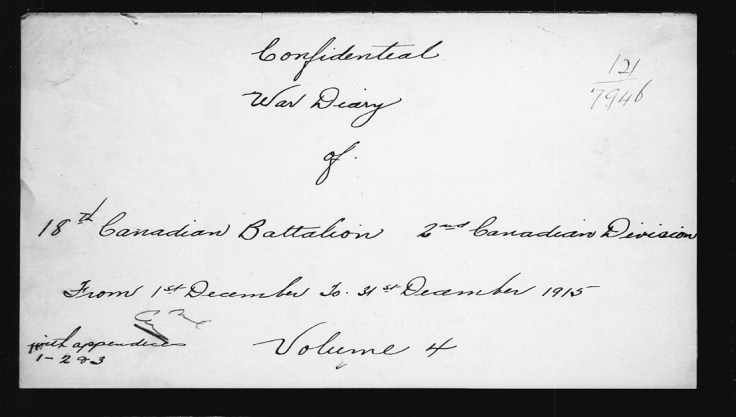 Confidential
121
7946
War Diary
of.
18th Canadian Battalion 2nd Canadian Division
From 1st December To. 31st December 1915
with appendices
1-2 & 3
Volume 4